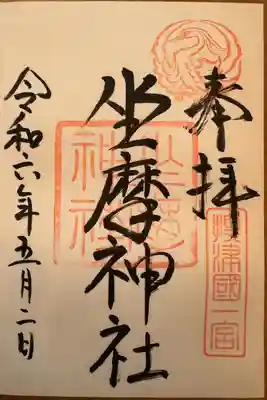 奉拝
摂津國一宮
坐摩神社
坐摩神社
令和六年五月二日